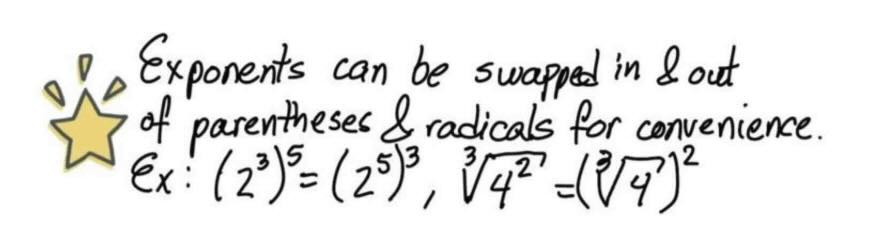 Exponents can be swapped in & out
of parentheses & radicals for convenience.
Ex: (2³)⁵ = (2⁵)³, ³√4² = (³√4)²